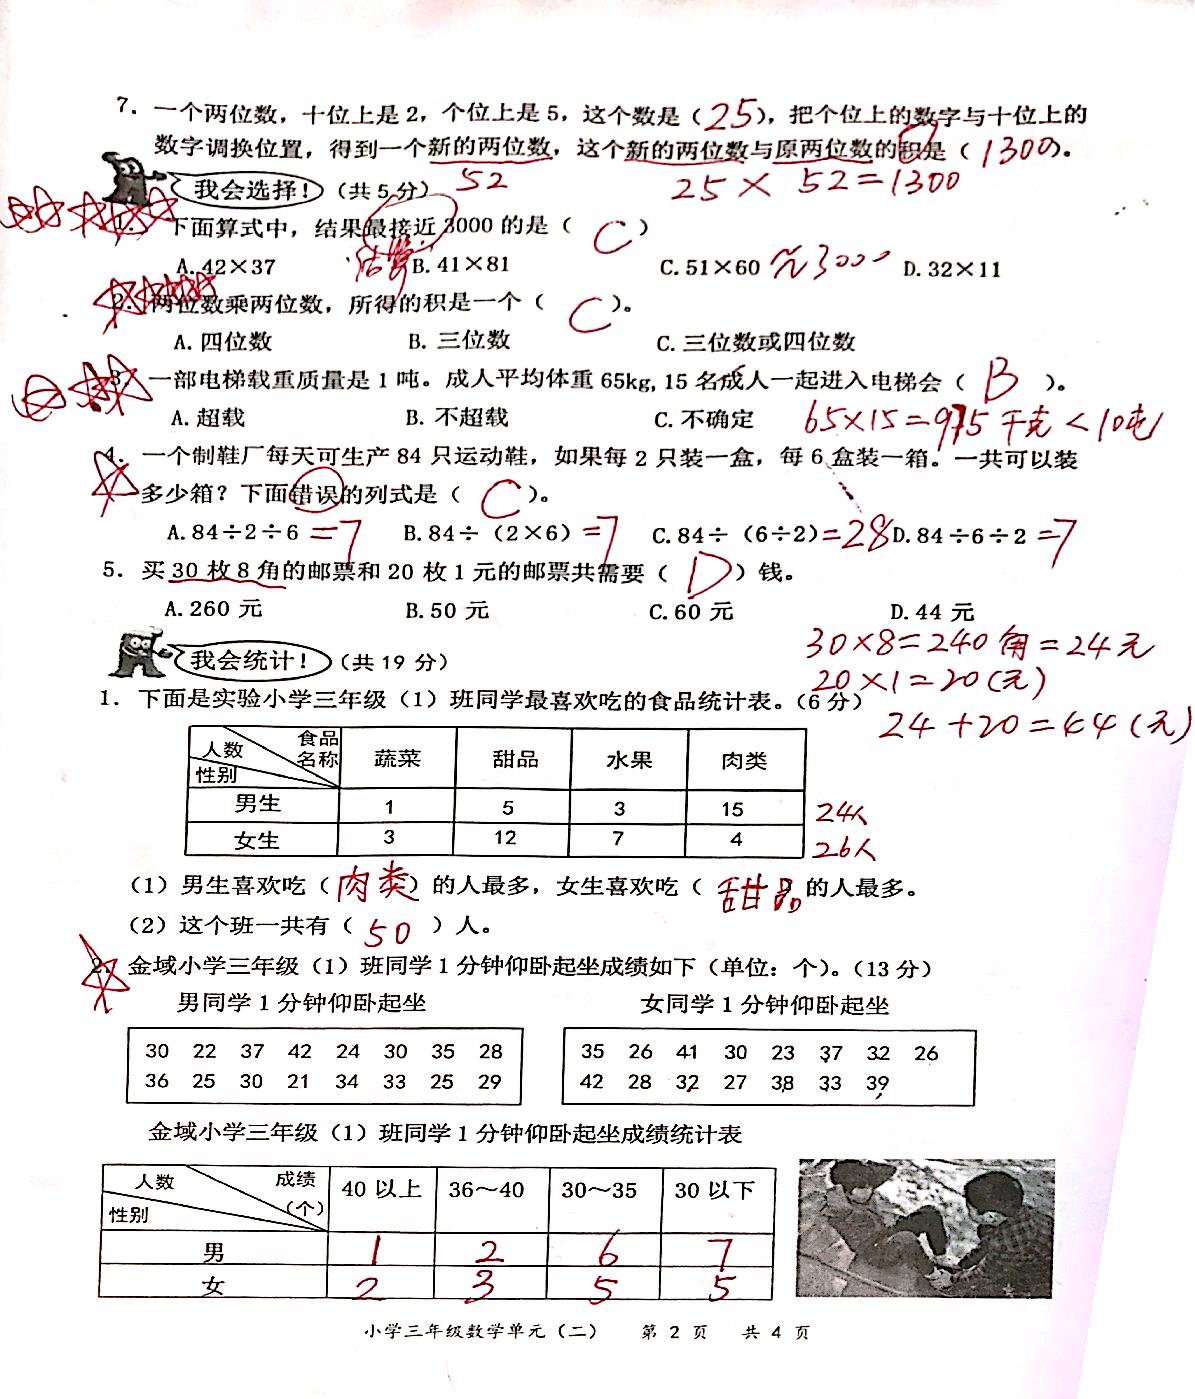 7. 一个两位数，十位上是2，个位上是5，这个数是（25），把个位上的数字与十位上的
数字调换位置，得到一个新的两位数，这个新的两位数与原两位数的积是（1300）。
52
25×52=1300
我会选择！（共5分）
1. 下面算式中，结果最接近3000的是（C）
估算
A. 42×37 B. 41×81 C. 51×60 ≈3000 D. 32×11
2. 两位数乘两位数，所得的积是一个（C）。
A. 四位数 B. 三位数 C. 三位数或四位数
3. 一部电梯载重质量是1吨。成人平均体重65kg, 15名成人一起进入电梯会（B）。
A. 超载 B. 不超载 C. 不确定
65×15=975千克<10吨
4. 一个制鞋厂每天可生产84只运动鞋，如果每2只装一盒，每6盒装一箱。一共可以装
多少箱？下面错误的列式是（C）。
A. 84÷2÷6=7 B. 84÷（2×6）=7 C. 84÷（6÷2）=28 D. 84÷6÷2=7
5. 买30枚8角的邮票和20枚1元的邮票共需要（D）钱。
A. 260元 B. 50元 C. 60元 D. 44元
30×8=240角=24元
20×1=20（元）
24+20=44（元）
我会统计！（共19分）
1. 下面是实验小学三年级（1）班同学最喜欢吃的食品统计表。（6分）
人数 食品名称 性别 蔬菜 甜品 水果 肉类
男生 1 5 3 15 24人
女生 3 12 7 4 26人
（1）男生喜欢吃（肉类）的人最多，女生喜欢吃（甜品）的人最多。
（2）这个班一共有（50）人。
2. 金域小学三年级（1）班同学1分钟仰卧起坐成绩如下（单位：个）。（13分）
男同学1分钟仰卧起坐 女同学1分钟仰卧起坐
30 22 37 42 24 30 35 28
36 25 30 21 34 33 25 29
35 26 41 30 23 37 32 26
42 28 32 27 38 33 39
金域小学三年级（1）班同学1分钟仰卧起坐成绩统计表
人数 成绩（个） 性别 40以上 36～40 30～35 30以下
男 1 2 6 7
女 2 3 5 5
小学三年级数学单元（二） 第2页 共4页